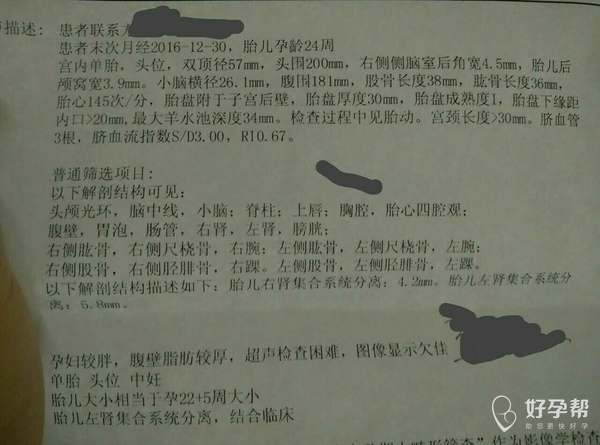 描述: 患者联系
患者末次月经2016-12-30, 胎儿孕龄24周
宫内单胎, 头位, 双顶径57mm, 头围200mm, 右侧侧脑室后角宽4.5mm, 胎儿后
颅窝宽3.9mm。小脑横径26.1mm, 腹围181mm, 股骨长度38mm, 肱骨长度36mm,
胎心145次/分, 胎盘附于子宫后壁, 胎盘厚度30mm, 胎盘成熟度I, 胎盘下缘距
内口>20mm, 最大羊水池深度34mm。检查过程中见胎动。宫颈长度>30mm。脐血管
3根, 脐血流指数S/D3.00, RI0.67。
普通筛选项目:
以下解剖结构可见:
头颅光环, 脑中线, 小脑; 脊柱; 上唇; 胸腔, 胎心四腔观;
腹壁, 胃泡, 肠管, 右肾, 左肾, 膀胱;
右侧肱骨, 右侧尺桡骨, 右腕; 左侧肱骨, 左侧尺桡骨, 左腕;
右侧股骨, 右侧胫腓骨, 右踝。左侧股骨, 左侧胫腓骨, 左踝。
以下解剖结构描述如下: 胎儿右肾集合系统分离: 4.2mm。胎儿左肾集合系统分
离: 5.8mm。
孕妇较胖, 腹壁脂肪较厚, 超声检查困难, 图像显示欠佳
单胎 头位 中妊
胎儿大小相当于孕22+5周大小
胎儿左肾集合系统分离, 结合临床
畸形筛查"作为影像学检查
好孕帮
助您更快好孕